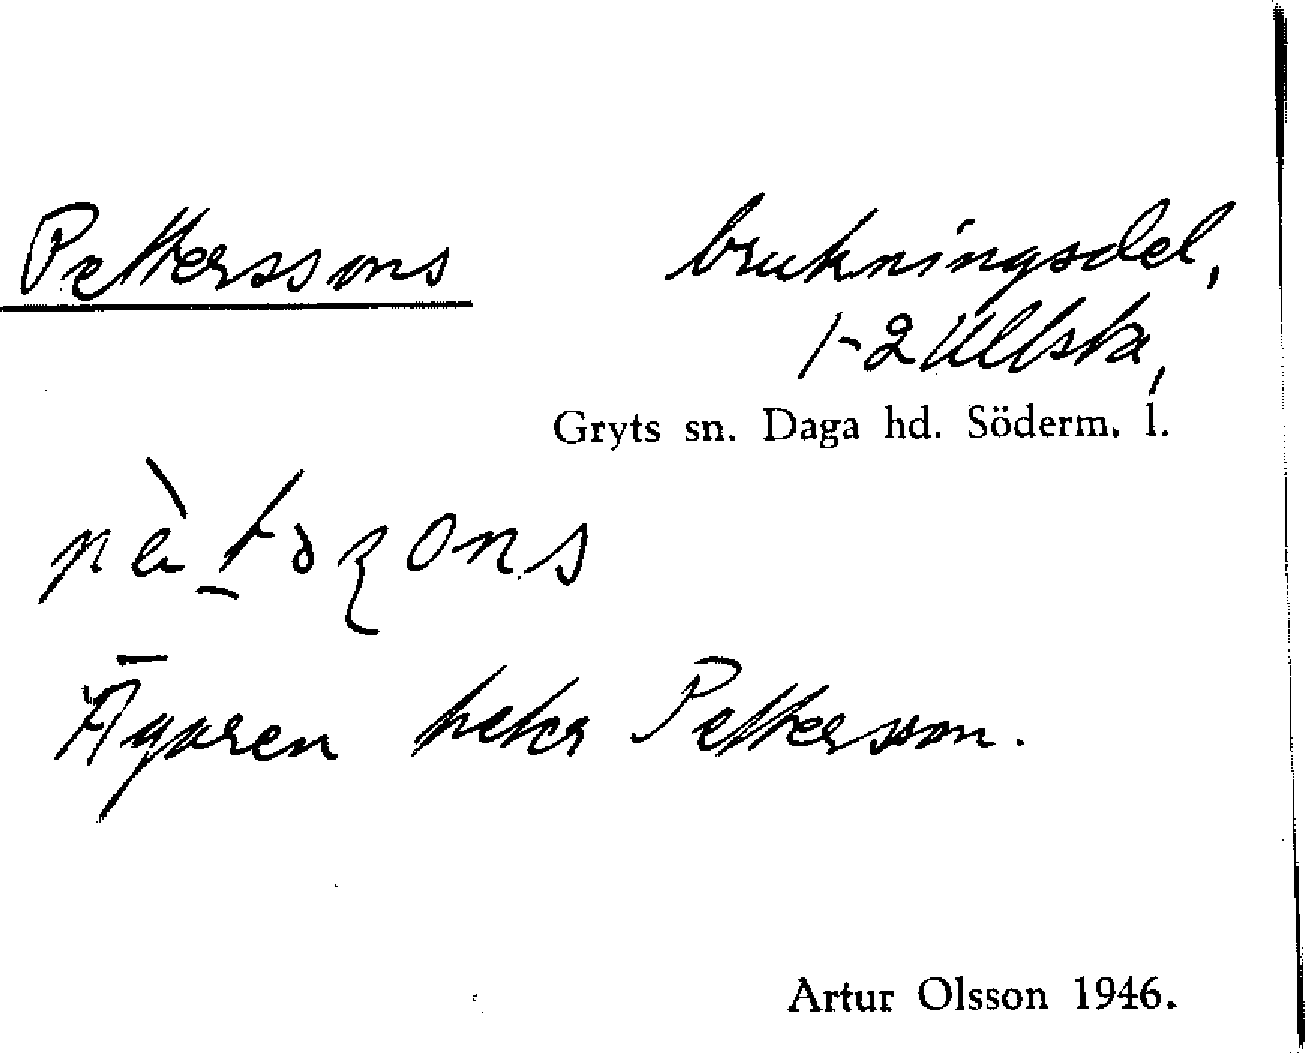 Petterssons brukningsdel,
1-2 Ullsta,
Gryts sn. Daga hd. Söderm. l.
Ägaren heter Pettersson.
Artur Olsson 1946.